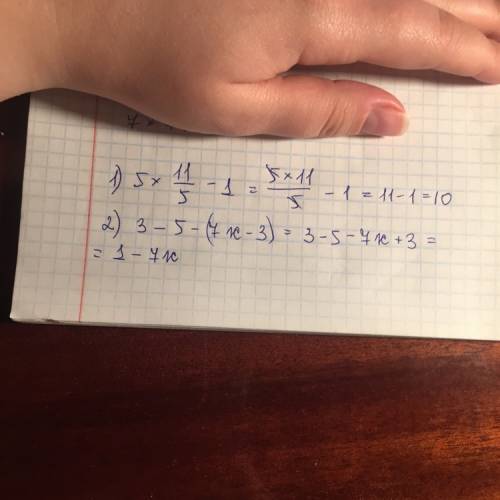 1) 5 × 11/5 - 1 = 5×11/5 - 1 = 11-1=10
2) 3 - 5 - (7х-3) = 3-5-7х+3 =
= 1 - 7х